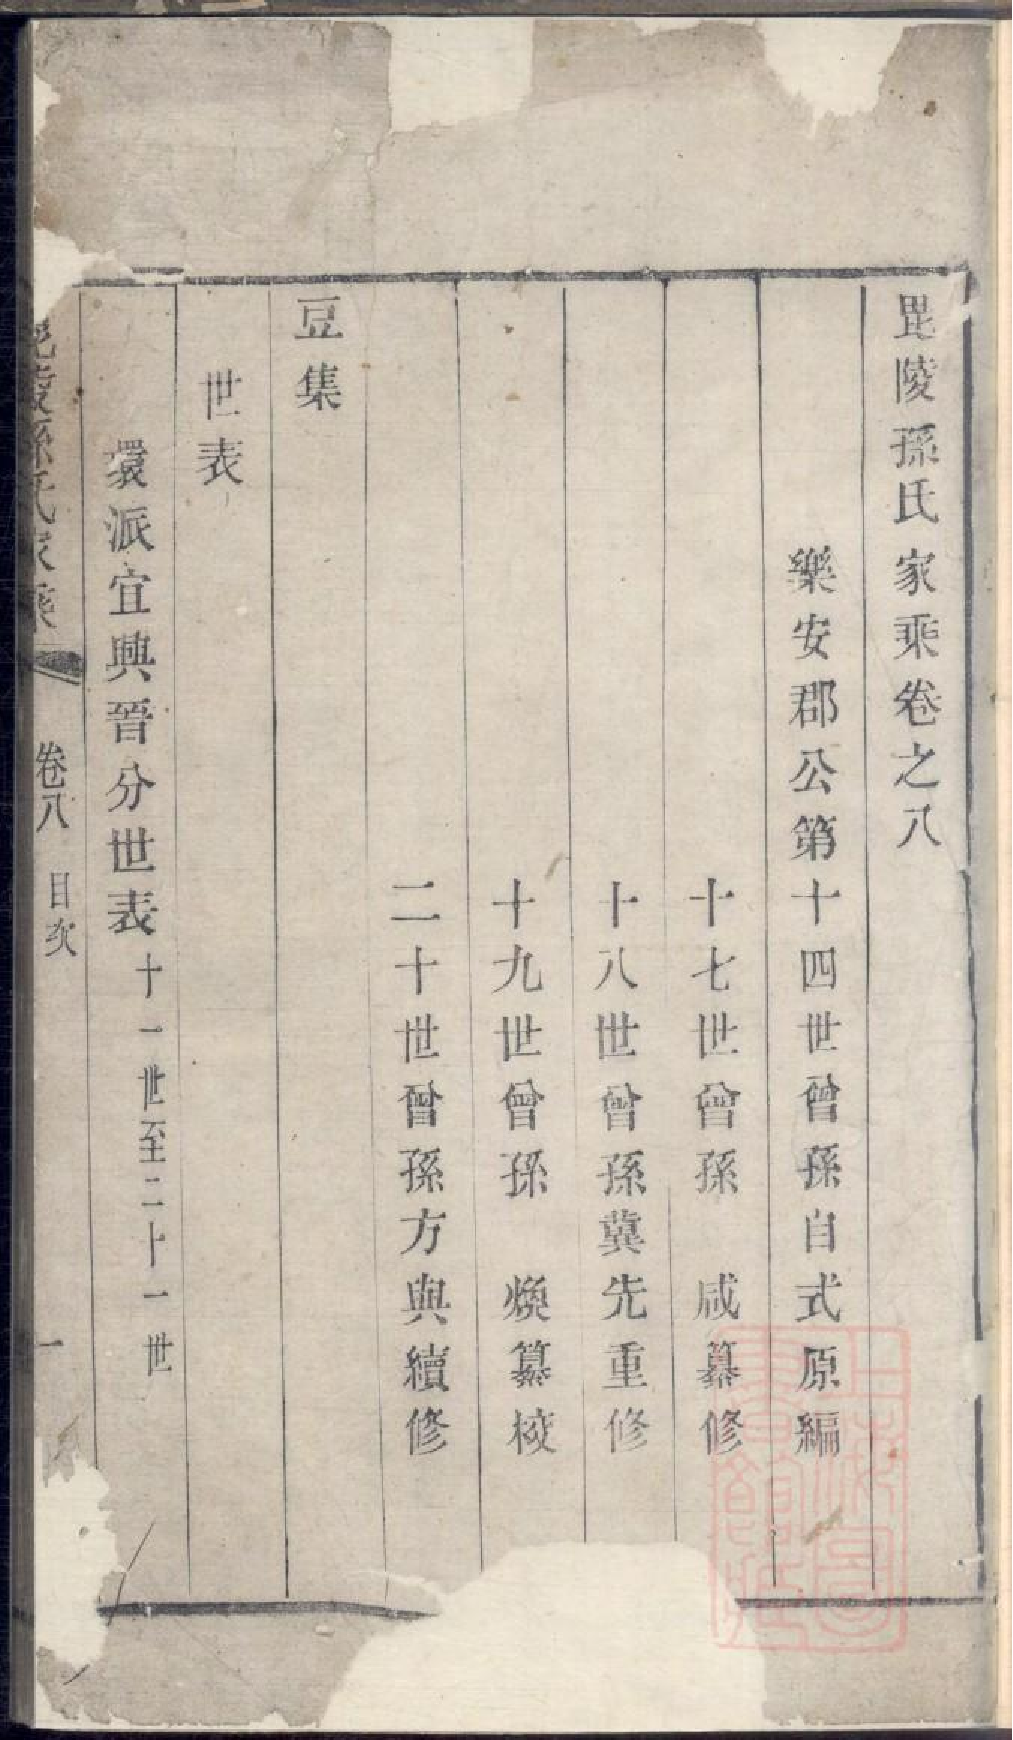 毘陵孫氏家乘卷之八
樂安郡公第十四世曾孫自式原編
十七世曾孫　咸纂修
十八世曾孫冀先重修
十九世曾孫　煥纂校
二十世曾孫方與續修
豆集
世表
環派宜興晉分世表十一世至二十一世
毘陵孫氏家乘　卷八　目次　一
上海圖書館藏